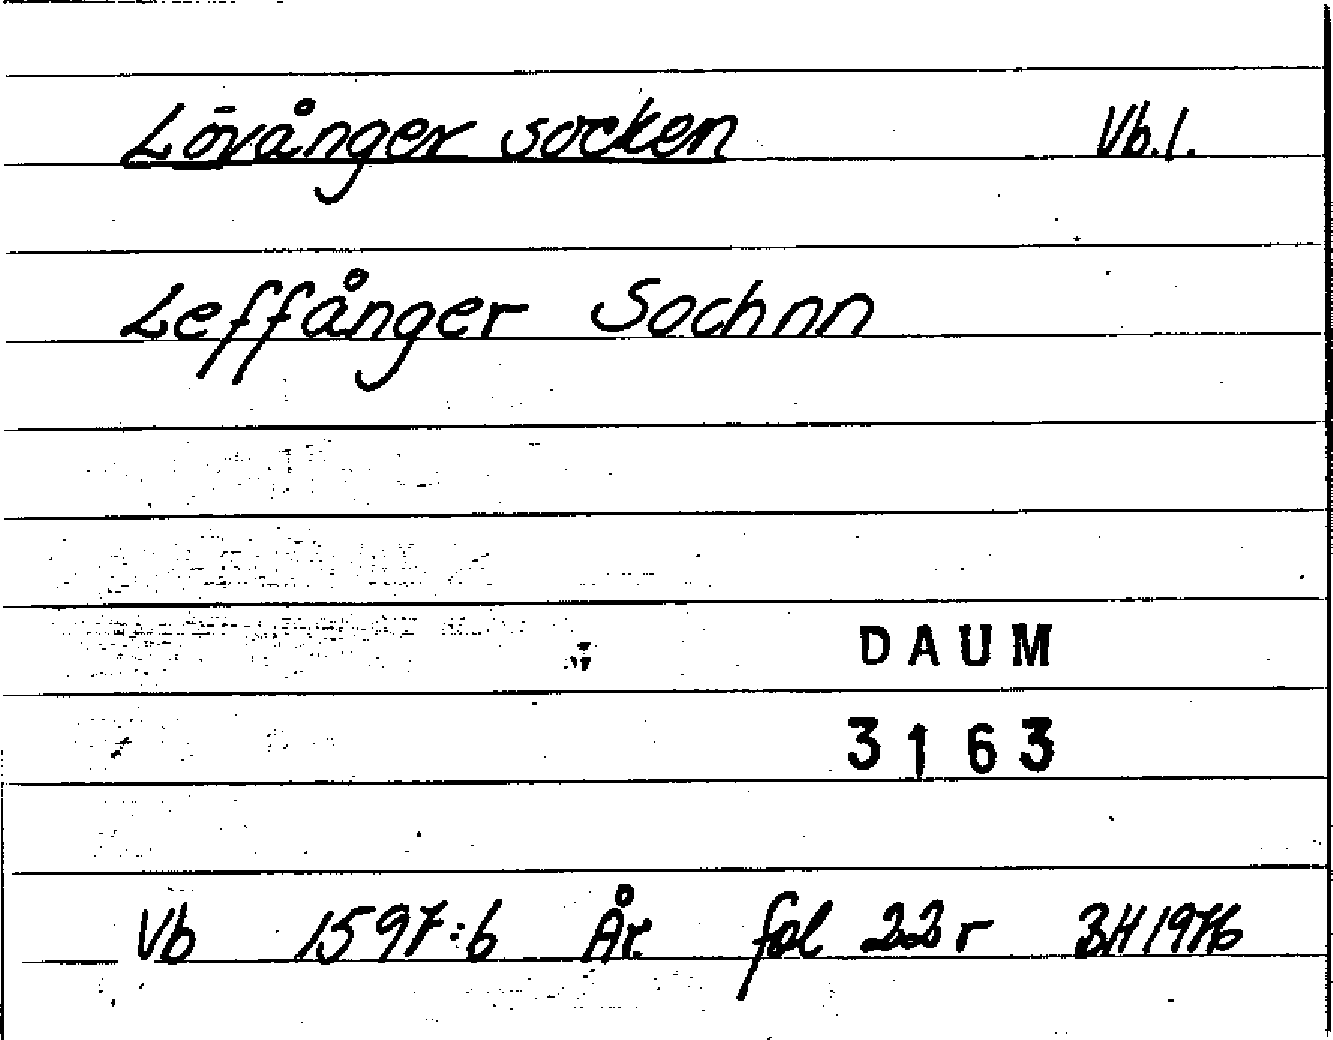 Lövånger socken Vb.l.
Leffånger Sochnn
DAUM
3163
Vb 1597:6 År. fol 22r BH 1976